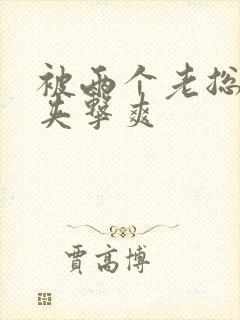 被两个老总
夹击爽
贾高博